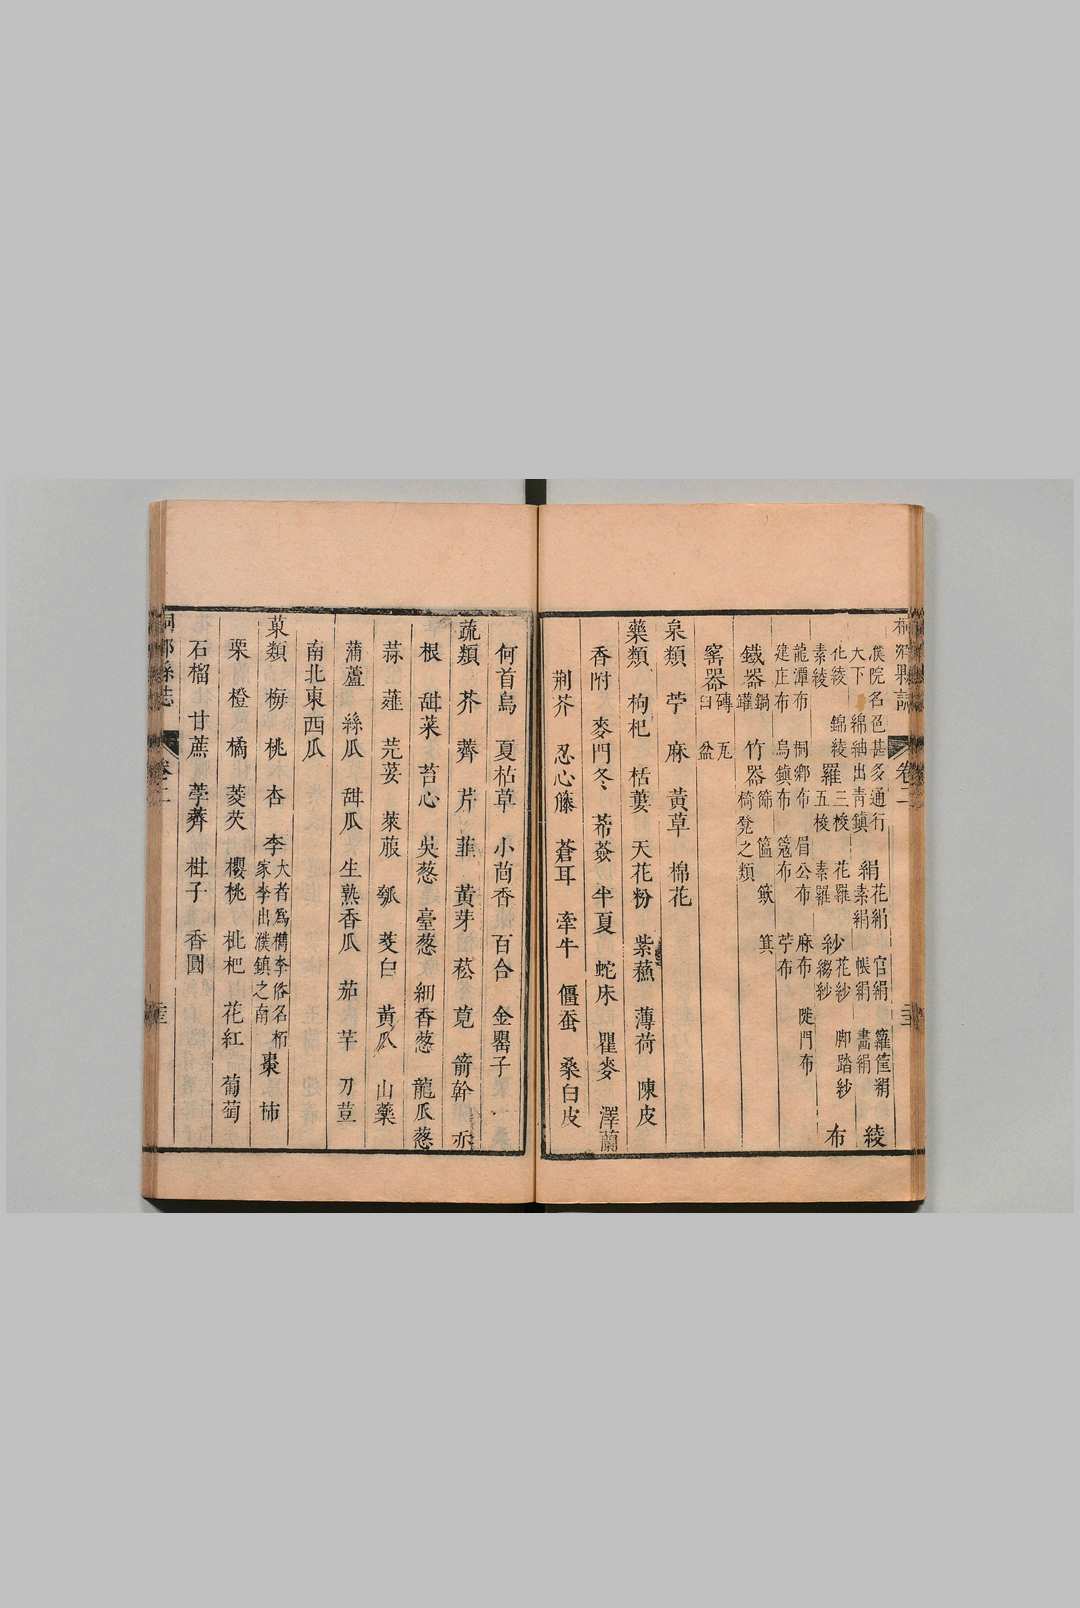 濮院名色甚多通行
大下 綿紬出青鎮 絹花絹 官絹 籮筐絹
素絹 帳絹 畫絹 綾
花綾 錦綾 羅三梭 花羅 紗花紗 脚踏紗
素綾 五梭 素羅 縐紗 布
龍潭布 桐鄉布 眉公布 麻布 陡門布
建庄布 烏鎮布 寇布 苧布
鐵器鍋 竹器篩 籃 籅 箕
罐 椅凳之類
窰器磚 瓦
臼 盆
枲類 苧 麻 黃草 棉花
藥類 枸杞 栝蔞 天花粉 紫蘓 薄荷 陳皮
香附 麥門冬 豨薟 半夏 蛇床 瞿麥 澤蘭
荆芥 忍心籐 蒼耳 牽牛 僵蚕 桑白皮
卷二
何首烏 夏枯草 小茴香 百合 金罌子
蔬類 芥 薺 芹 韮 黃芽 菘 莧 箭幹 赤
根 甜菜 苔心 吳葱 臺葱 細香葱 龍瓜葱
蒜 薤 芫荽 萊菔 瓠 茭白 黃瓜 山藥
蒲蘆 絲瓜 甜瓜 生熟香瓜 茄 芋 刀荳
南北東西瓜
菓類 梅 桃 杏 李大者爲檇李俗名栢
家李出濮鎮之南 棗 柿
栗 橙 橘 菱芡 櫻桃 枇杷 花紅 葡萄
石榴 甘蔗 葧薺 柑子 香圓
桐鄉縣誌 卷二